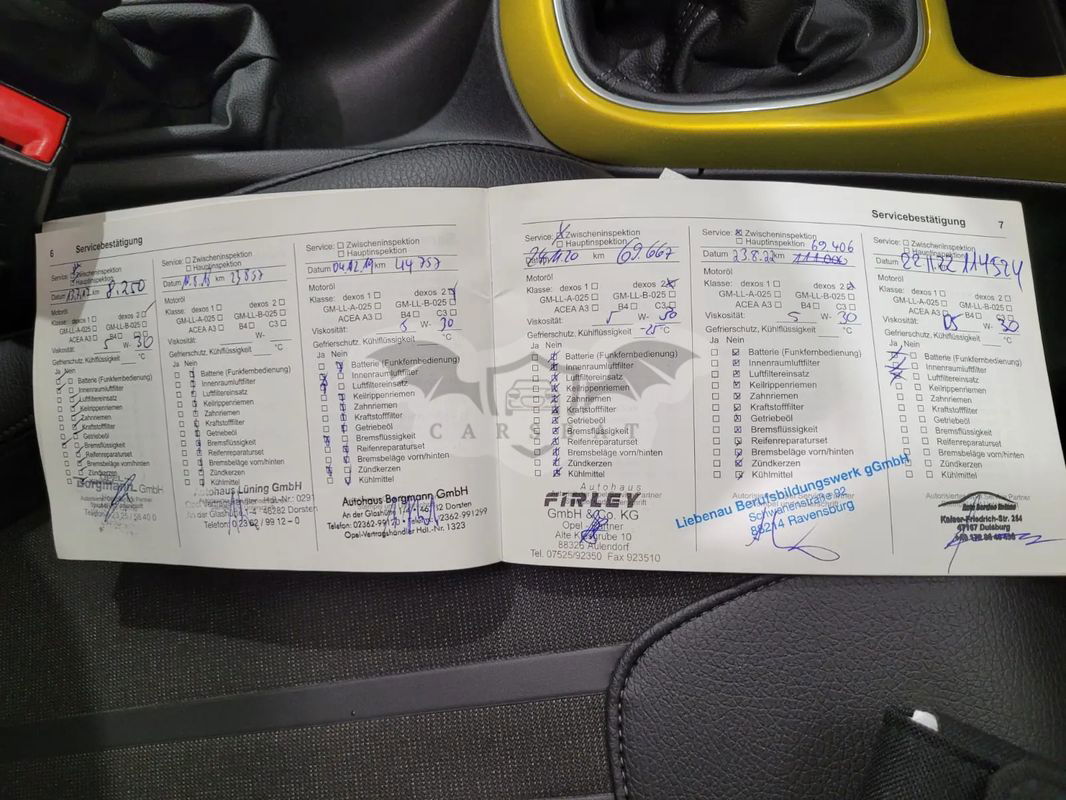 6 Servicebestätigung
Service: Zwischeninspektion
Hauptinspektion
Datum 13.7.17 km 8.250
Motoröl
Klasse: dexos 1 dexos 2
GM-LL-A-025 GM-LL-B-025
ACEA A3 B4 C3
Viskosität: 5 W- 30
Gefrierschutz, Kühlflüssigkeit °C
Ja Nein
Batterie (Funkfernbedienung)
Innenraumluftfilter
Luftfiltereinsatz
Keilrippenriemen
Zahnriemen
Kraftstofffilter
Getriebeöl
Bremsflüssigkeit
Reifenreparaturset
Bremsbeläge vorn/hinten
Zündkerzen
Kühlmittel
Borgmann GmbH
Service: Zwischeninspektion
Hauptinspektion
Datum km 23857
Motoröl
Klasse: dexos 1 dexos 2
GM-LL-A-025 GM-LL-B-025
ACEA A3 B4 C3
Viskosität: W-
Gefrierschutz, Kühlflüssigkeit °C
Ja Nein
Batterie (Funkfernbedienung)
Innenraumluftfilter
Luftfiltereinsatz
Keilrippenriemen
Zahnriemen
Kraftstofffilter
Getriebeöl
Bremsflüssigkeit
Reifenreparaturset
Bremsbeläge vorn/hinten
Zündkerzen
Kühlmittel
Autohaus Lüning GmbH
46282 Dorsten
Telefon: 0 23 62 / 99 12 – 0
Service: Zwischeninspektion
Hauptinspektion
Datum 04.12.19 km 44757
Motoröl
Klasse: dexos 1 dexos 2
GM-LL-A-025 GM-LL-B-025
ACEA A3 B4 C3
Viskosität: 5 W- 30
Gefrierschutz, Kühlflüssigkeit °C
Ja Nein
Batterie (Funkfernbedienung)
Innenraumluftfilter
Luftfiltereinsatz
Keilrippenriemen
Zahnriemen
Kraftstofffilter
Getriebeöl
Bremsflüssigkeit
Reifenreparaturset
Bremsbeläge vorn/hinten
Zündkerzen
Kühlmittel
Autohaus Borgmann GmbH
An der Glashütte 46282 Dorsten
Telefon: 02362-991299
Opel-Vertragshändler Hdl.-Nr. 1323
Servicebestätigung 7
Service: Zwischeninspektion
Hauptinspektion
26.11.20 km 69.667
Motoröl
Klasse: dexos 1 dexos 2
GM-LL-A-025 GM-LL-B-025
ACEA A3 B4 C3
Viskosität: 5 W- 30
Gefrierschutz, Kühlflüssigkeit -25 °C
Ja Nein
Batterie (Funkfernbedienung)
Innenraumluftfilter
Luftfiltereinsatz
Keilrippenriemen
Zahnriemen
Kraftstofffilter
Getriebeöl
Bremsflüssigkeit
Reifenreparaturset
Bremsbeläge vorn/hinten
Zündkerzen
Kühlmittel
Autohaus
FIRLEY
GmbH & Co. KG
Opel - Partner
Alte Kiesgrube 10
88326 Aulendorf
Tel. 07525/92350 Fax 923510
Service: Zwischeninspektion
Hauptinspektion 69 406
Datum 23.8.22 km
Motoröl
Klasse: dexos 1 dexos 2
GM-LL-A-025 GM-LL-B-025
ACEA A3 B4 C3
Viskosität: 5 W- 30
Gefrierschutz, Kühlflüssigkeit °C
Ja Nein
Batterie (Funkfernbedienung)
Innenraumluftfilter
Luftfiltereinsatz
Keilrippenriemen
Zahnriemen
Kraftstofffilter
Getriebeöl
Bremsflüssigkeit
Reifenreparaturset
Bremsbeläge vorn/hinten
Zündkerzen
Kühlmittel
Liebenau Berufsbildungswerk gGmbH
Schwanenstraße 92
88214 Ravensburg
Service: Zwischeninspektion
Hauptinspektion
Datum 22.11.22 114524
Motoröl
Klasse: dexos 1 dexos 2
GM-LL-A-025 GM-LL-B-025
ACEA A3 B4 C3
Viskosität: 05 W- 30
Gefrierschutz, Kühlflüssigkeit °C
Ja Nein
Batterie (Funkfernbedienung)
Innenraumluftfilter
Luftfiltereinsatz
Keilrippenriemen
Zahnriemen
Kraftstofffilter
Getriebeöl
Bremsflüssigkeit
Reifenreparaturset
Bremsbeläge vorn/hinten
Zündkerzen
Kühlmittel
Kaiser-Friedrich-Str. 264
47167 Duisburg
CARSBAT